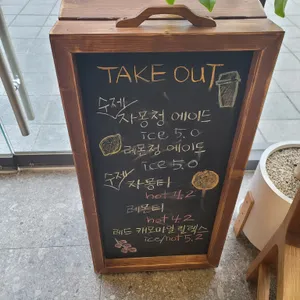 TAKE OUT
수제
자몽청 에이드
ice 5.0
레몬청 에이드
ice 5.0
수제
자몽티
hot 4.2
레몬티
hot 4.2
레드 캐모마일 릴렉스
ice/hot 5.2